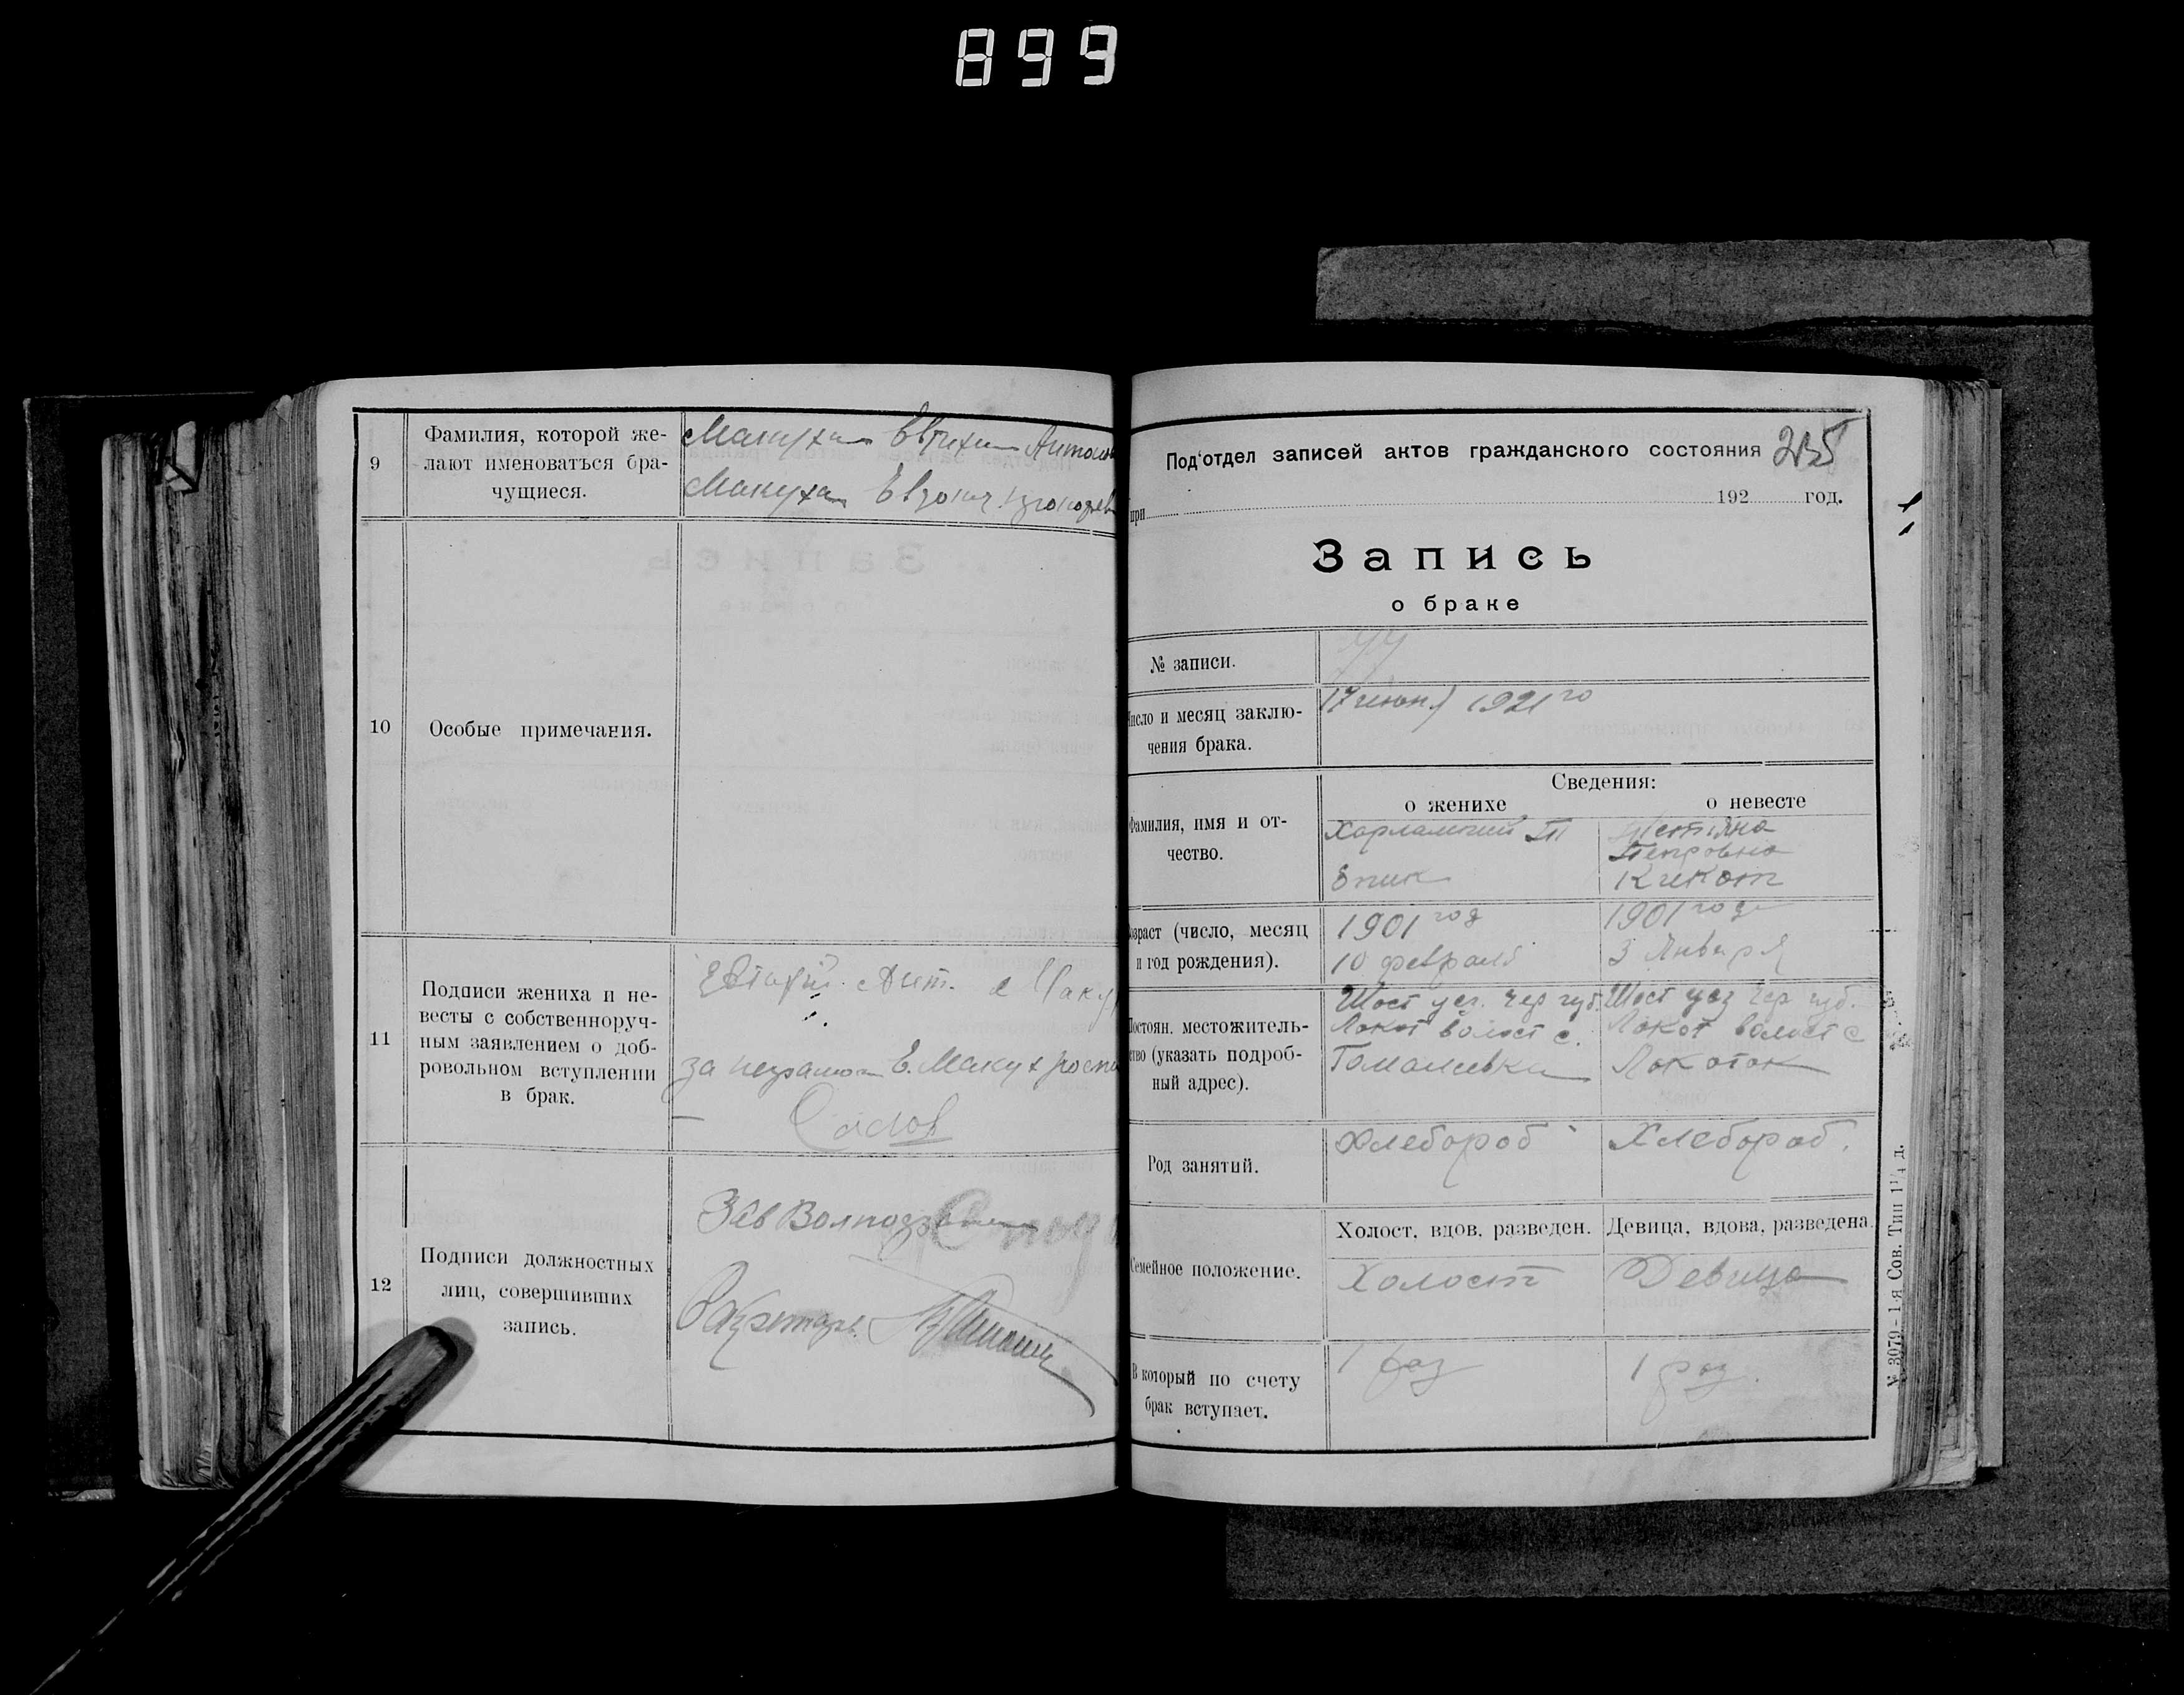 899
9
Фамилия, которой же-
лают именоваться бра-
чущиеся.
Макуха Антонов
Макуха
10
Особые примечания.
11
Подписи жениха и не-
весты с собственноруч-
ным заявлением о доб-
ровольном вступлении
в брак.
Ант. Маку
за Е. Макух
12
Подписи должностных
лиц, совершивших
запись.
Зав
Под'отдел записей актов гражданского состояния
при 192 год.
Запись
о браке
№ записи.
Число и месяц заклю-
чения брака.
17 июня 1921 го
Сведения:
о женихе
о невесте
Фамилия, имя и от-
чество.
Харлампий
Петровна
Кикот
Возраст (число, месяц
и год рождения).
1901 год
10 февраля
1901 года
3 Января
Постоян. местожитель-
ство (указать подроб-
ный адрес).
Шост уез. Чер губ.
Локот волост с.
Томашевка
Шост уез Чер губ.
Локот волост с
Локоток
Род занятий.
Хлебороб
Хлебороб.
Семейное положение.
Холост, вдов, разведен.
Девица, вдова, разведена.
Холост
Девица
В который по счету
брак вступает.
1 раз
1 раз.
№ 3079 – 1-я Сов. Тип 1¹/₄ д.